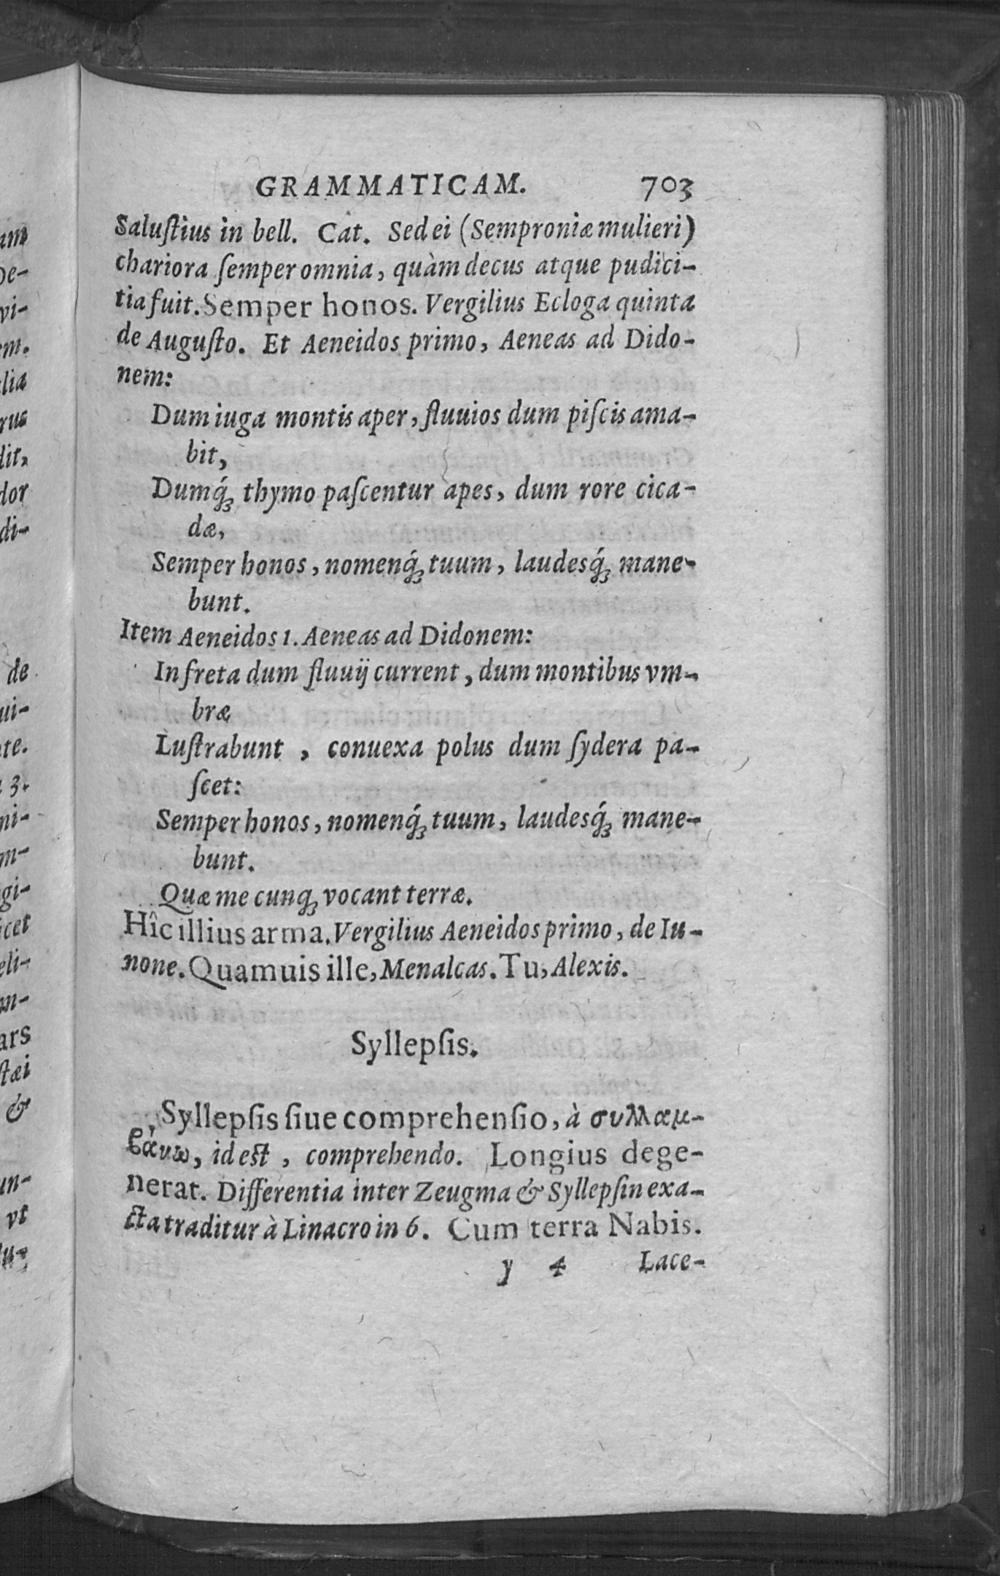 GRAMMATICAM. 703
Saluſtius in bell. Cat. Sed ei (Semproniæ mulieri)
chariora ſemper omnia, quàm decus atque pudici-
tia fuit. Semper honos. Vergilius Ecloga quinta
de Auguſto. Et Aeneidos primo, Aeneas ad Dido-
nem:
Dum iuga montis aper, fluuios dum piſcis ama-
bit,
Dumq́ꝫ thymo paſcentur apes, dum rore cica-
dæ,
Semper honos, nomenq́ꝫ tuum, laudesq́ꝫ mane-
bunt.
Item Aeneidos 1. Aeneas ad Didonem:
In freta dum fluuij current, dum montibus vm-
bræ
Luſtrabunt, conuexa polus dum ſydera pa-
ſcet:
Semper honos, nomenq́ꝫ tuum, laudesq́ꝫ mane-
bunt.
Quæ me cunqꝫ vocant terræ.
Hîc illius arma. Vergilius Aeneidos primo, de Iu-
none. Quamuis ille, Menalcas. Tu, Alexis.
Syllepſis.
Syllepſis ſiue comprehenſio, à συλλαμ-
βάνω, id eſt, comprehendo. Longius dege-
nerat. Differentia inter Zeugma & Syllepſin exa-
cta traditur à Linacro in 6. Cum terra Nabis.
y 4 Lace-